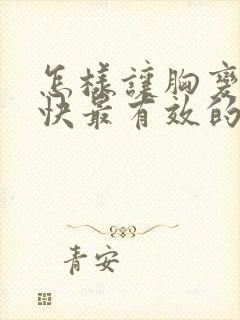 怎樣讓胸變
快最有效的
青安